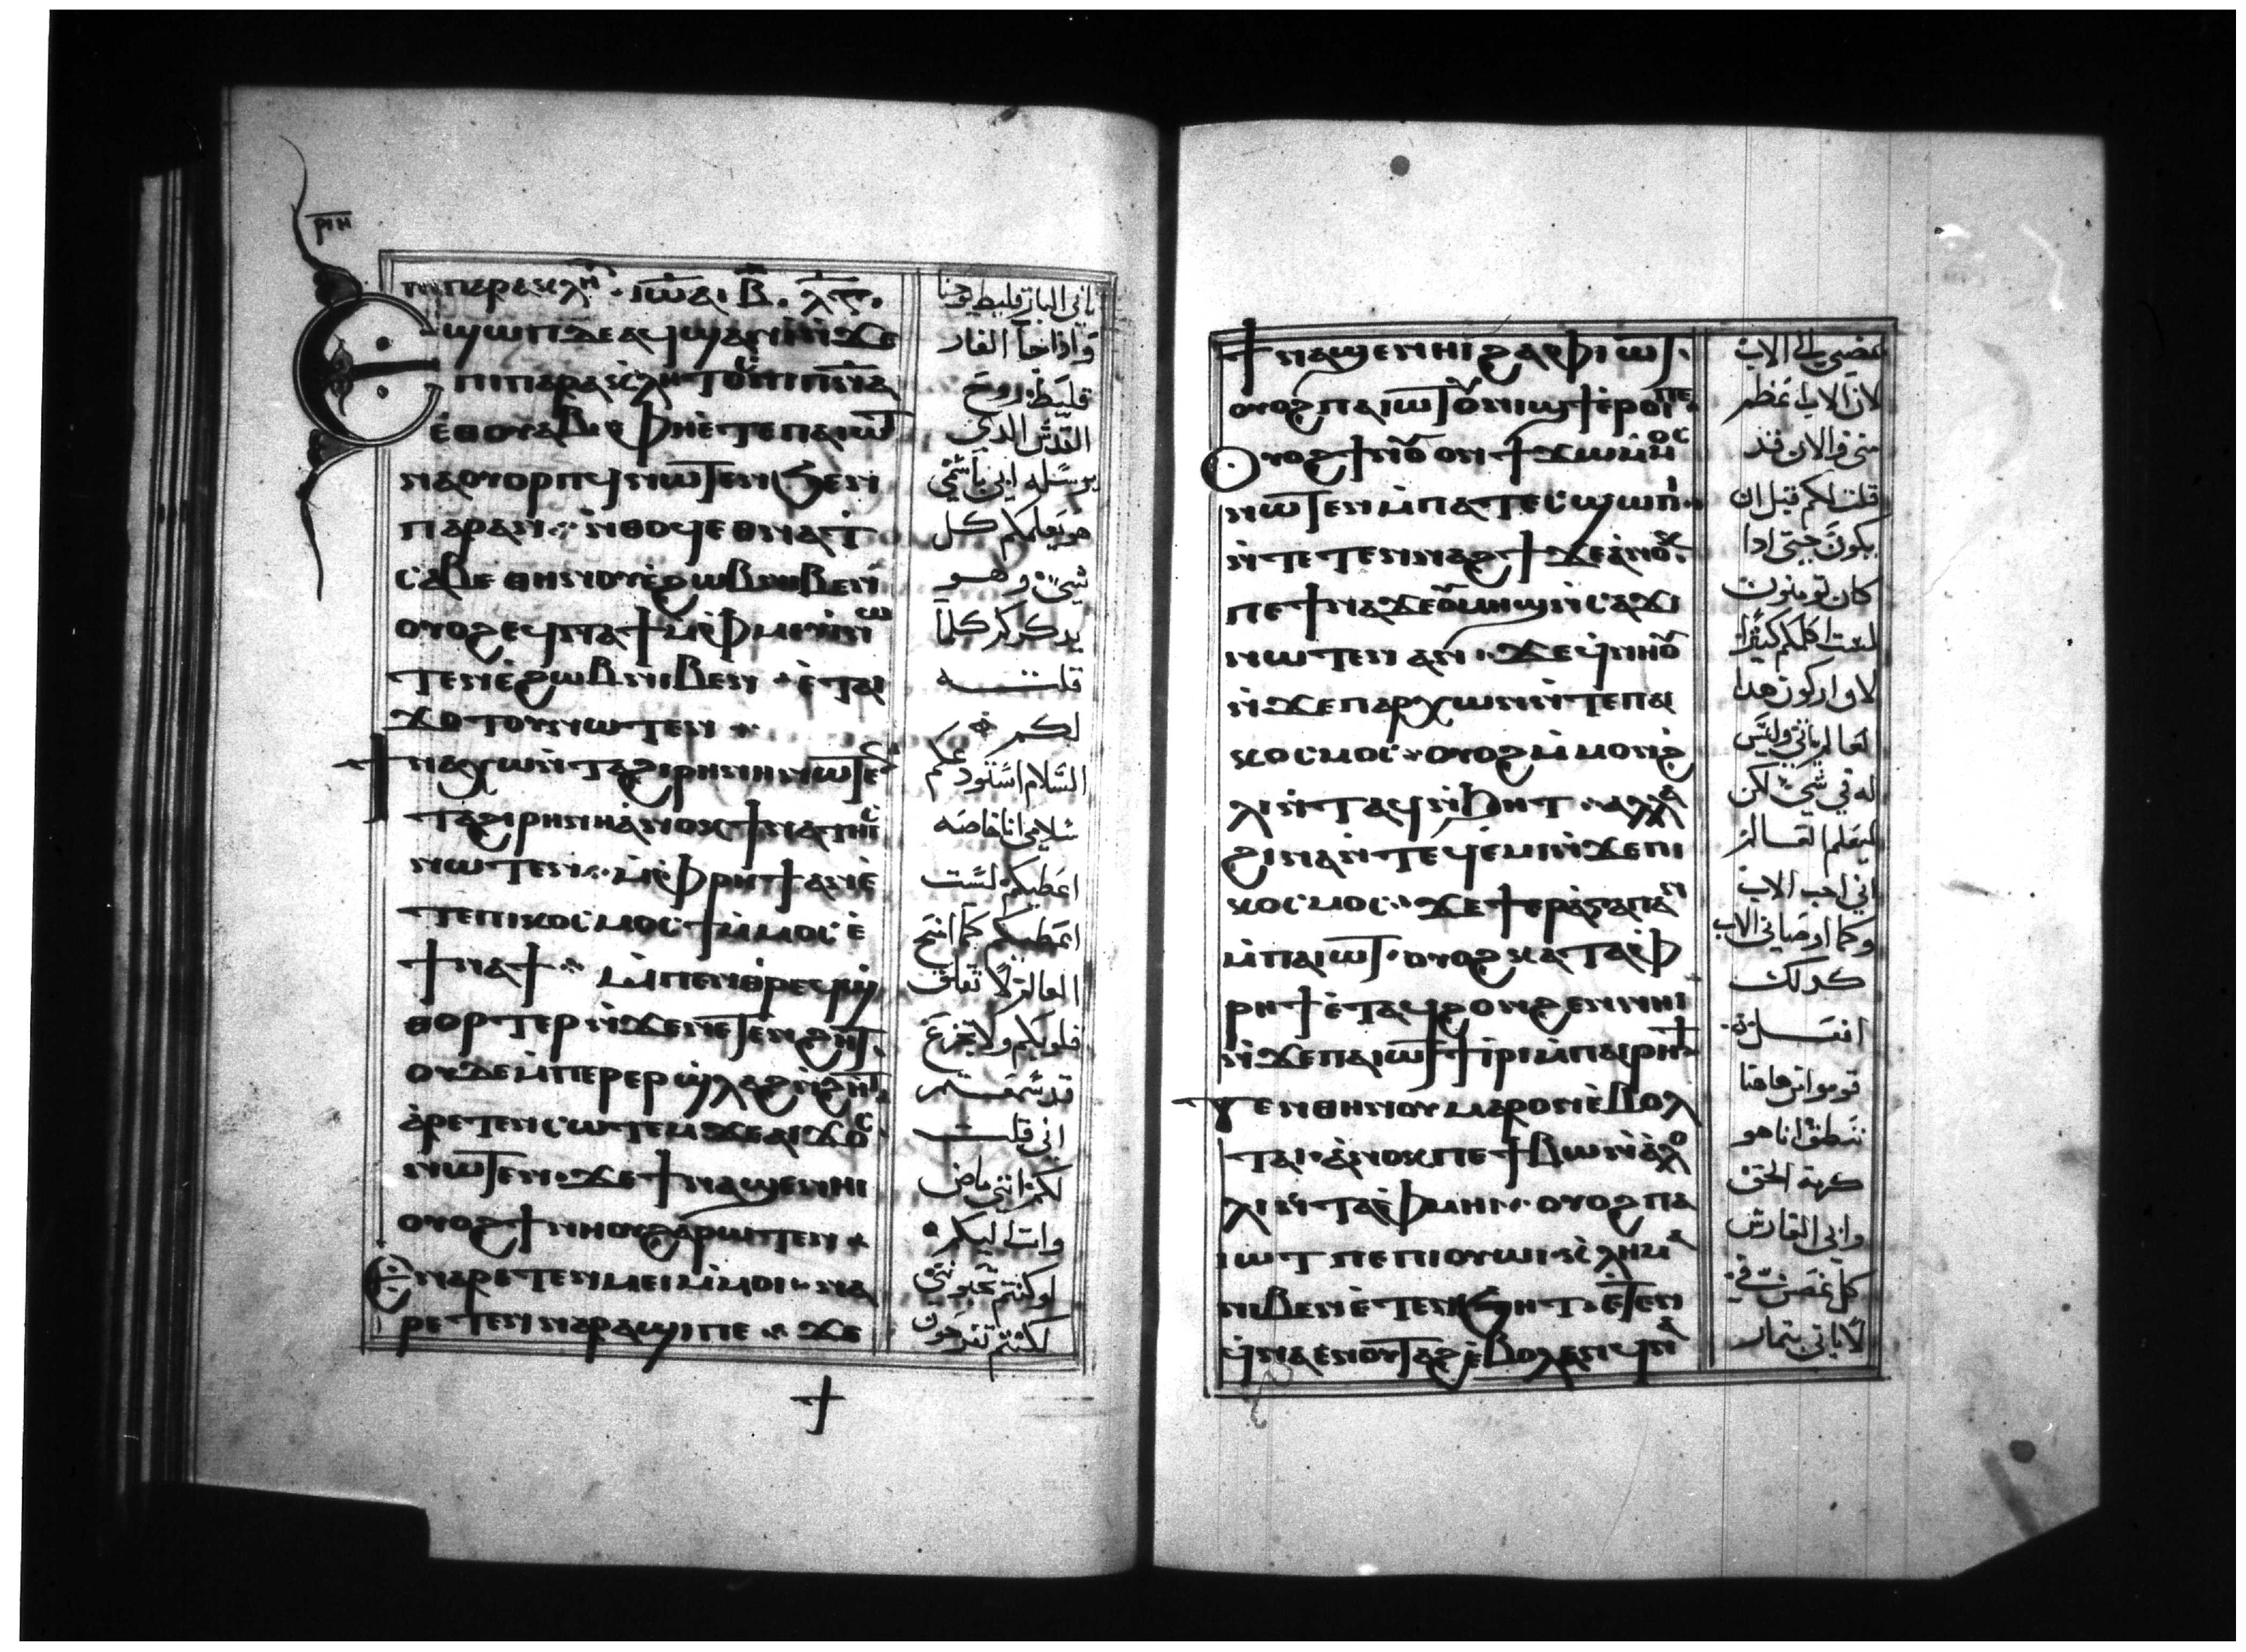 ⲣⲓⲏ
ⲡⲓⲡⲁⲣⲁⲕⲗⲏ · ⲓⲱⲁ
ⲉϣⲱⲡ ⲇⲉ ⲁϥϣⲁⲛⲓ̀ ⲛ̀ϫⲉ
ⲡⲓⲡⲁⲣⲁⲕⲗⲏⲧⲟⲥ ⲡⲓⲡ̅ⲛ̅ⲁ̅
ⲉ̀ⲑⲟⲩⲁⲃ ⲫⲏⲉ̀ⲧⲉ ⲡⲁⲓⲱⲧ
ⲛⲁⲟⲩⲟⲣⲡϥ ⲛⲱⲧⲉⲛ ϧⲉⲛ
ⲡⲁⲣⲁⲛ ⁘ ⲛ̀ⲑⲟϥ ⲉⲑⲛⲁⲧ
ⲥⲁⲃⲉ ⲑⲏⲛⲟⲩ ⲉ̀ϩⲱⲃ ⲛⲓⲃⲉⲛ
ⲟⲩⲟϩ ⲉϥⲛⲁϯ ⲙⲉ̀ⲫⲙⲉⲩⲓ ⲛⲱ
ⲧⲉⲛ ⲉ̀ϩⲱⲃ ⲛⲓⲃⲉⲛ · ⲉ̀ⲧⲁⲓ
ϫⲟⲧⲟⲩ ⲛⲱⲧⲉⲛ ⁘
ϯⲛⲁⲭⲱ ⲛ̀ⲧⲁϩⲓⲣⲏⲛⲏ ⲛⲱⲧⲉⲛ
ⲧⲁϩⲓⲣⲏⲛⲏ ⲁ̀ⲛⲟⲕ ϯⲛⲁⲧⲏⲓⲥ
ⲛⲱⲧⲉⲛ ⁘ ⲙⲉ̀ⲫⲣⲏϯ ⲁⲛ ⲉ̀
ⲧⲉ ⲡⲓⲕⲟⲥⲙⲟⲥ ϯ ⲙ̀ⲙⲟⲥ ⲉ̀
ϯⲛⲁϯ ⁘ ⲙ̀ⲡⲉⲛⲑⲣⲉϥϣ
ⲑⲟⲣⲧⲉⲣ ⲛ̀ϫⲉ ⲛⲉⲧⲉⲛϩⲏⲧ ·
ⲟⲩⲇⲉ ⲙ̀ⲡⲉⲣⲉⲣϣⲗⲁϩ ⲛ̀ϩⲏⲧ
ⲁ̀ⲣⲉⲧⲉⲛⲥⲱⲧⲉⲙ ϫⲉ ⲁⲓϫⲟⲥ
ⲛⲱⲧⲉⲛ · ϫⲉ ϯⲛⲁϣⲉⲛⲏⲓ
ⲟⲩⲟϩ ϯⲛⲏⲟⲩ ϩⲁⲣⲱⲧⲉⲛ ⁘
ⲉⲛⲁⲣⲉⲧⲉⲛⲙⲉⲓ ⲙ̀ⲙⲟⲓ · ⲛⲁ
ⲣⲉⲧⲉⲛⲛⲁⲣⲁϣⲓ ⲡⲉ ⁘ ϫⲉ
ياتي البارقليط يوحنا
واذا جآ الفار
قليط روح
القدس الدي
يرسله ابي باسمي
هو يعلمكم كل
شي وهو
يدكركم كلما
قلته
لكم
السلام استودعكم
سلامي انا خاصه
اعطيكم لست
اعطيكم كما
العالم لا تقلق
قلوبكم ولا تجزع
قد سمعتم
اني قلت
لكم انني ماض
وات اليكم
لو كنتم تحبونني
لكنتم تفرحون
ϯⲛⲁϣⲉⲛⲏⲓ ϩⲁ ⲫⲓⲱⲧ ·
ⲟⲩⲟϩ ⲡⲁⲓⲱⲧ ⲟⲩⲛⲓϣϯ ⲉ̀ⲣⲟⲓ ⲡⲉ
ⲟⲩⲟϩ ϯⲛⲟⲩ ⲟⲛ ϯϫⲱ ⲙ̀ⲙⲟⲥ
ⲛⲱⲧⲉⲛ ⲙ̀ⲡⲁⲧⲉⲥϣⲱⲡⲓ
ⲛ̀ⲧⲉⲧⲉⲛⲛⲁϩϯ ϫⲉ ⲁ̀ⲛⲟⲕ
ⲡⲉ ϯⲛⲁϫⲉ ⲟⲩⲙⲏϣ ⲛ̀ⲥⲁϫⲓ
ⲛⲱⲧⲉⲛ ⲁⲛ ⁘ ϫⲉ ϥ̀ⲛⲏⲟⲩ
ⲛ̀ϫⲉ ⲡⲁⲣⲭⲱⲛ ⲛ̀ⲧⲉ ⲡⲁⲓ
ⲕⲟⲥⲙⲟⲥ ⁘ ⲟⲩⲟϩ ⲙ̀ⲙⲟⲛ ϩ
ⲗⲓ ⲛ̀ⲧⲁϥ ⲛ̀ϧⲏⲧ ⁘ ⲁⲗⲗⲁ
ϩⲓⲛⲁ ⲛ̀ⲧⲉϥⲉ̀ⲙⲓ ⲛ̀ϫⲉ ⲡⲓ
ⲕⲟⲥⲙⲟⲥ ⁘ ϫⲉ ϯⲉⲣⲁ̀ⲅⲁⲡⲁⲛ
ⲙ̀ⲡⲁⲓⲱⲧ · ⲟⲩⲟϩ ⲕⲁⲧⲁ ⲉ̀ⲫ
ⲣⲏϯ ⲉ̀ⲧⲁϥϩⲟⲛϩⲉⲛ ⲛⲏⲓ
ⲛ̀ϫⲉ ⲡⲁⲓⲱⲧ ϯⲓ̀ⲣⲓ ⲙ̀ⲡⲁⲓⲣⲏϯ
ⲧⲉⲛⲑⲏⲛⲟⲩ ⲙⲁⲣⲟⲛ ⲉ̀ⲃⲟⲗ
ⲧⲁⲓ · ⲁ̀ⲛⲟⲕ ⲡⲉ ϯⲃⲱ ⲛ̀ⲁ̀ⲗⲟ
ⲗⲓ ⲛ̀ⲧⲁⲉ̀ⲫⲙⲏⲓ ⁘ ⲟⲩⲟϩ ⲡⲁ
ⲓⲱⲧ ⲡⲉ ⲡⲓⲟⲩⲱⲓ · ⲕⲗⲏⲙⲁ
ⲛⲓⲃⲉⲛ ⲉ̀ⲧⲉⲛϧⲏⲧ · ⲉ̀ⲧⲉⲛ
ϥ̀ⲛⲁⲉ̀ⲛⲟⲩⲧⲁϩ ⲉ̀ⲃⲟⲗ ⲁⲛ ϥⲛⲁ
بمضيي الى الاب
لان الاب اعظم
مني والان قد
قلت لكم قبل ان
يكون حتى ادا
كان تومنون
لست اكلمكم كثيرا
لان اركون هدا
العالم ياتي وليس
له في شي لكن
ليعلم العالم
اني احب الاب
وكما اوصاني الاب
كدلك
افعل
قوموا من هاهنا
ننطلق انا هو
كرمة الحق
وابي الفارس
كل غصن في
لا ياتي بثمار